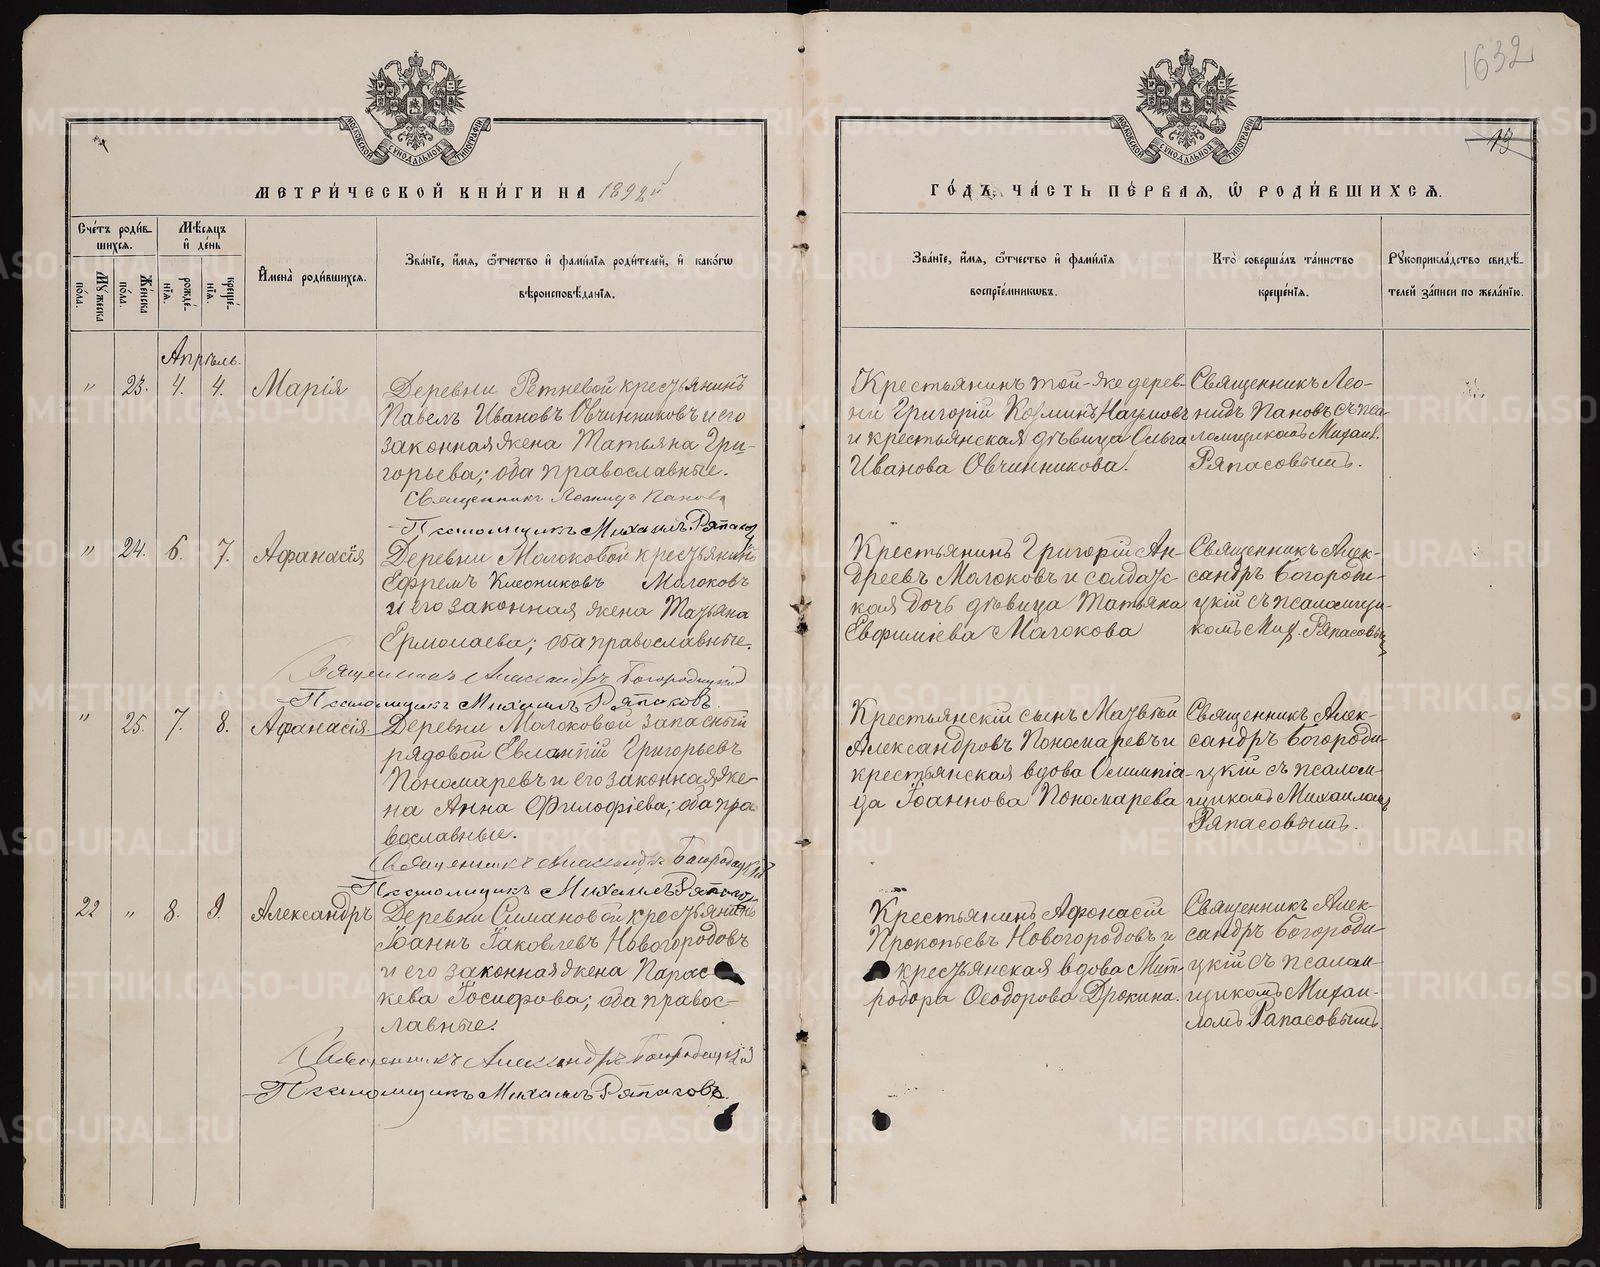 1632
13
МОСКОВСКОЙ СѴНОДАЛЬНОЙ ТИПОГРАФІИ
МОСКОВСКОЙ СѴНОДАЛЬНОЙ ТИПОГРАФІИ
МЕТРИ́ЧЕСКОЙ КНИ́ГИ НА 1892й
ГО́ДЪ, ЧА́СТЬ ПЕ́РВАЯ, Ѽ РОДИ́ВШИХСѦ.
Сче́тъ роди́в-
шихсѧ.
Мѣ́сѧцъ
и҆ де́нь
Мꙋ́жеска
по́ла.
Же́нска
по́ла.
рожде́-
нїѧ.
креще́-
нїѧ.
И҆мена̀ роди́вшихсѧ.
Зва́нїе, и҆́мѧ, ѻ҆́тчество и҆ фами́лїѧ роди́телей, и҆ како́гѡ
вѣроисповѣ́данїѧ.
Зва́нїе, и҆́мѧ, ѻ҆́тчество и҆ фами́лїѧ
воспрїе́мникѡвъ.
Кто̀ соверша́лъ та́инство
креще́нїѧ.
Рꙋкоприкла́дство свидѣ́-
телей за́писи по жела́нїю.
Апрѣль.
" 23. 4. 4. Марія
Деревни Ретневой крестьянинъ
Павелъ Ивановъ Овчинниковъ и его
законная жена Татьяна Гри-
горьева; оба православные.
Священникъ Леонидъ Пановъ
Псаломщикъ Михаилъ Ряпасовъ
Крестьянинъ той-же дерев-
ни Григорій Козминъ Наумовъ
и крестьянская дѣвица Ольга
Иванова Овчинникова.
Священникъ Лео-
нидъ Пановъ съ пса-
ломщикомъ Михаил.
Ряпасовымъ.
" 24. 6. 7. Афанасія
Деревни Молоковой крестьянинъ
Ефремъ Клеониковъ Молоковъ
и его законная жена Татьяна
Ермолаева; оба православные.
Священникъ Александръ Богородицкій
Псаломщикъ Михаилъ Ряпасовъ.
Крестьянинъ Григорій Ан-
дреевъ Молоковъ и солдатс-
кая дочь дѣвица Татьяна
Евфиміева Молокова
Священникъ Алек-
сандръ Богороди-
цкій съ псаломщи-
комъ Мих. Ряпасовымъ
" 25. 7. 8. Афанасія
Деревни Молоковой запасный
рядовой Евлантій Григорьевъ
Пономаревъ и его законная же-
на Анна Филофіева; оба пра-
вославные.
Священникъ Александръ Богородицкій
Псаломщикъ Михаилъ Ряпасовъ
Крестьянскій сынъ Матвѣй
Александровъ Пономаревъ и
крестьянская вдова Олимпіа-
да Іоаннова Пономарева
Священникъ Алек-
сандръ Богороди-
цкій съ псалом-
щикомъ Михаиломъ
Ряпасовымъ.
22 " 8. 9. Александръ
Деревни Симановой крестьянинъ
Іоаннъ Іаковлевъ Новогородовъ
и его законная жена Парас
кева Іосифова; оба правос-
лавные.
Священникъ Александръ Богородицкій
Псаломщикъ Михаилъ Ряпасовъ.
Крестьянинъ Афонасій
Прокопьевъ Новогородовъ и
крестьянская вдова Мит-
родора Ѳеодорова Дрокина.
Священникъ Алек-
сандръ Богороди-
цкій съ псалом-
щикомъ Михаи-
ломъ Рапасовымъ.
METRIKI.GASO-URAL.RU